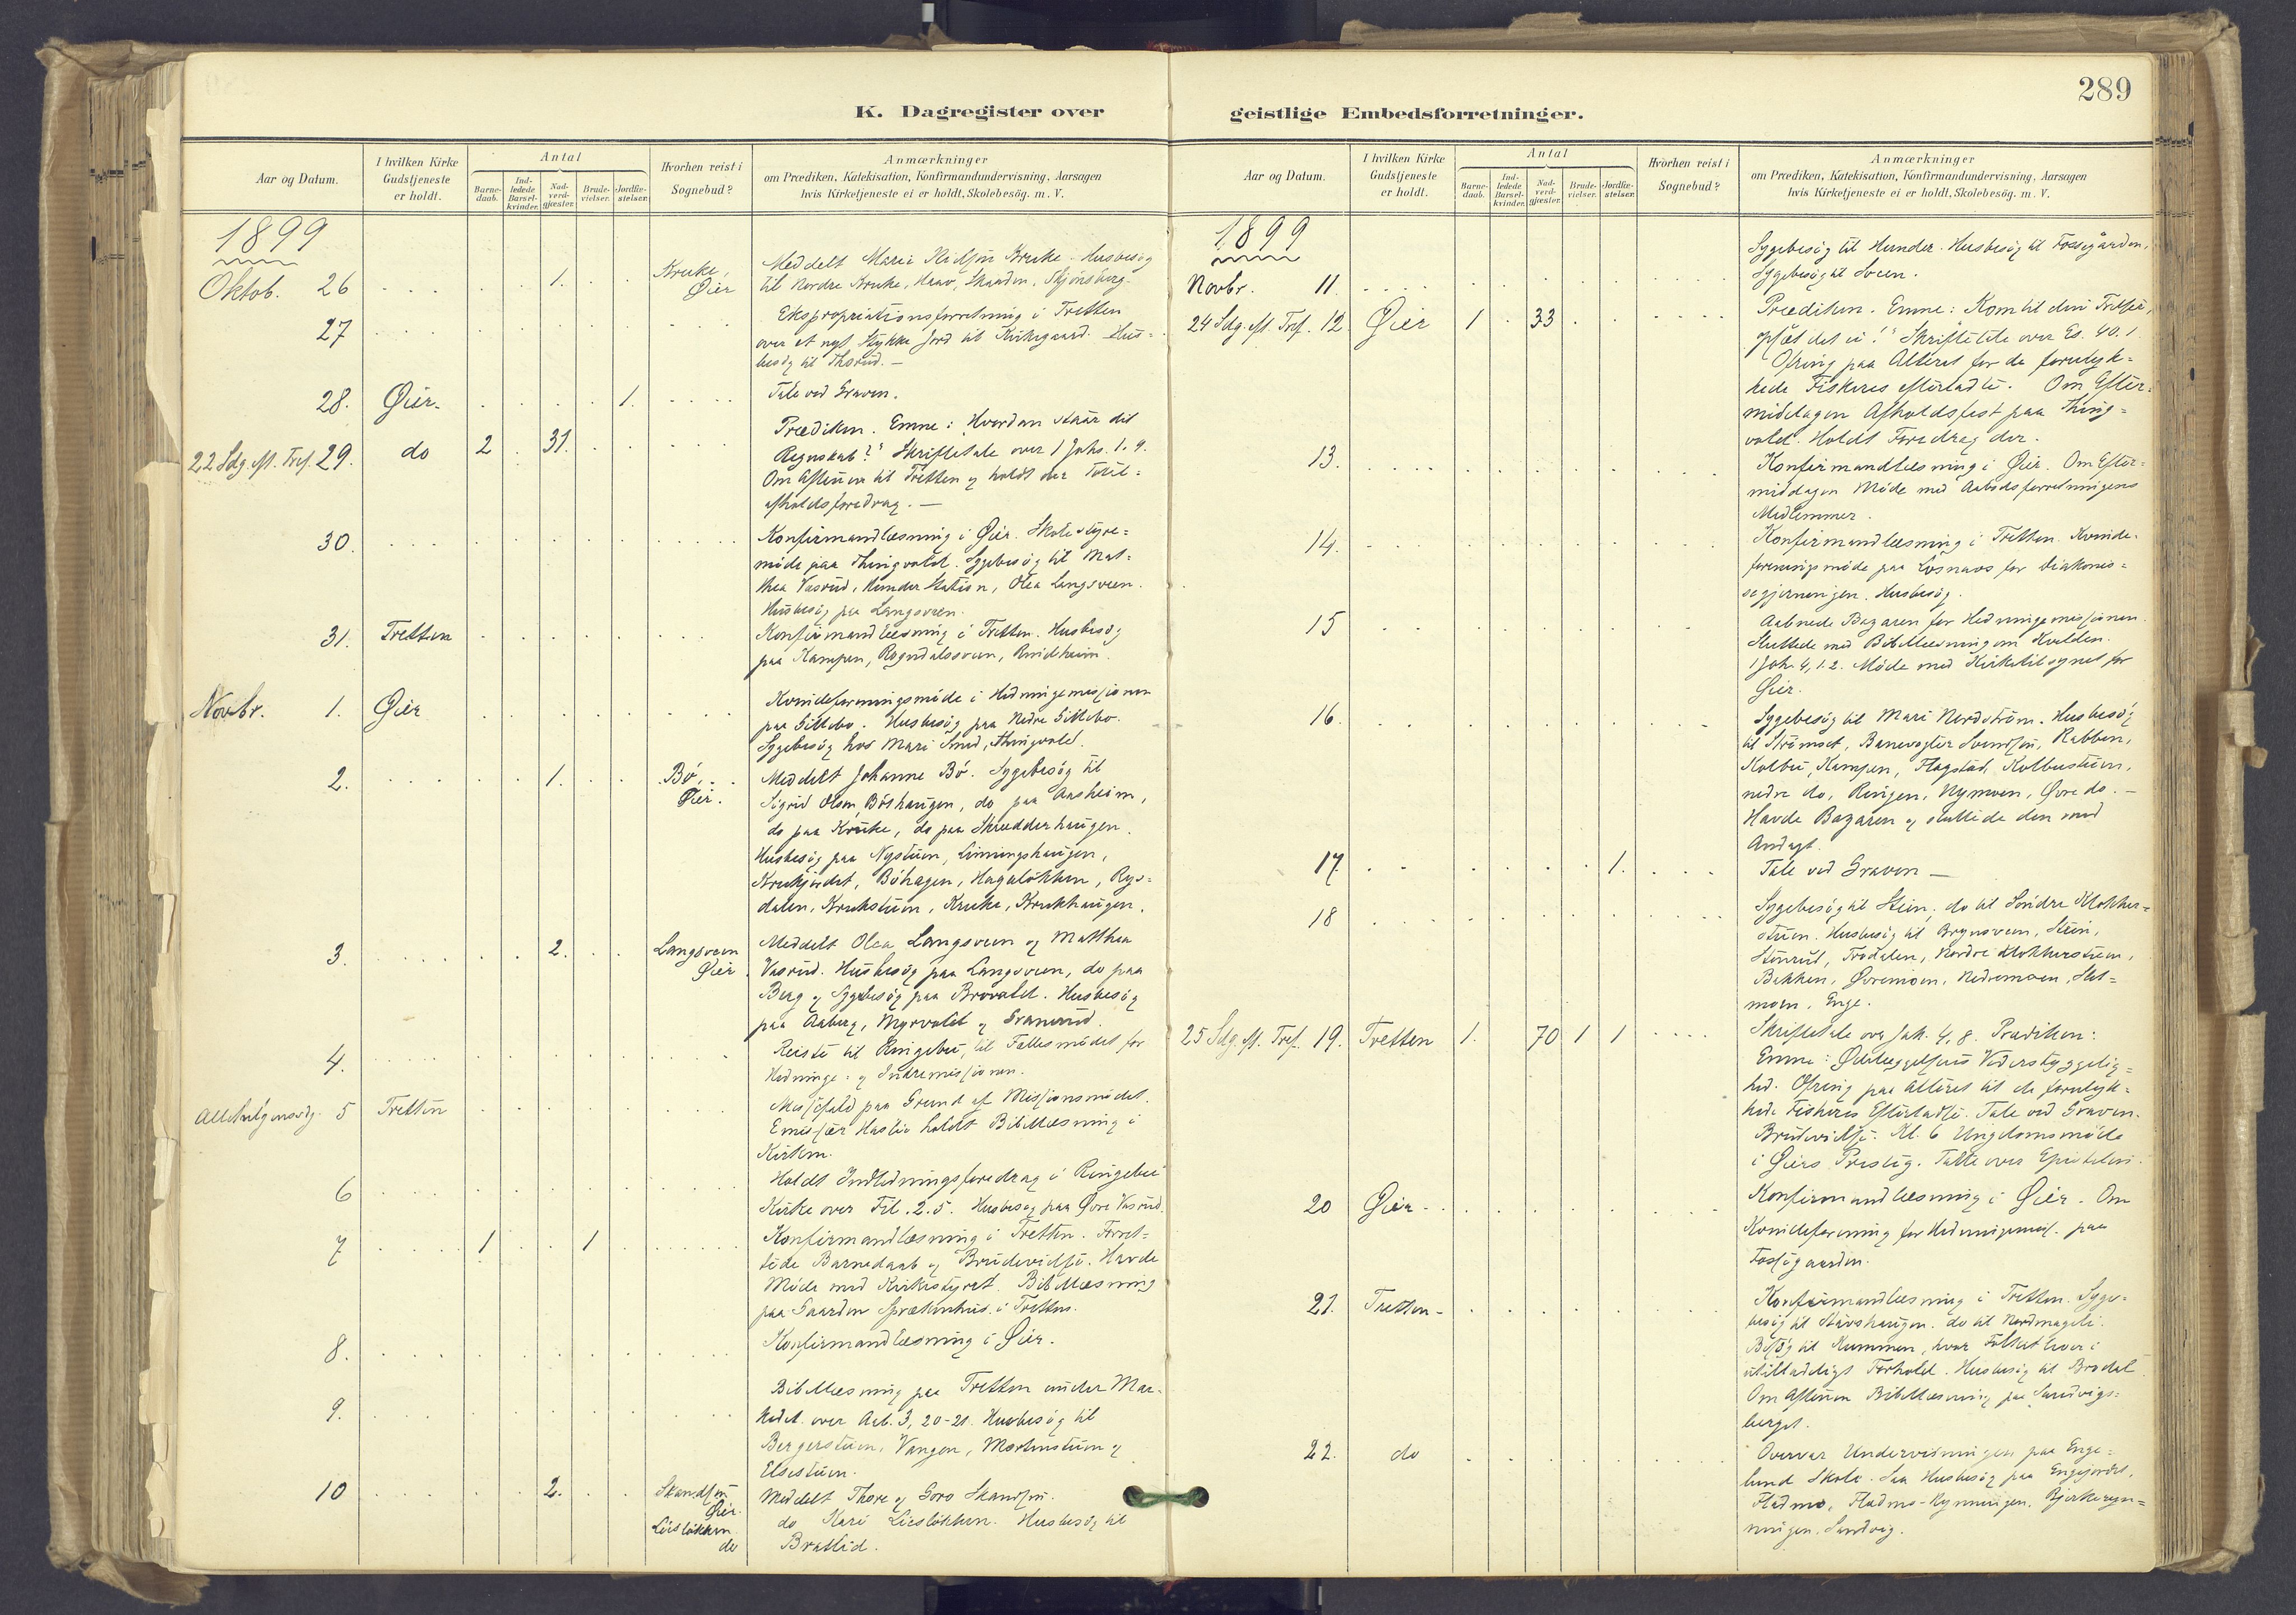 289
K. Dagregister over geistlige Embedsforretninger.
Aar og Datum.
I hvilken Kirke Gudstjeneste er holdt.
Antal
Barne-daab.
Ind-ledede Barsel-kvinder.
Nad-verd-gjæster.
Brude-vielser.
Jordfæ-stelser.
Hvorhen reist i Sognebud?
Anmærkninger
om Prædiken, Katekisation, Konfirmandundervisning, Aarsagen
hvis Kirketjeneste ei er holdt, Skolebesög. m. V.
1899
Oktob. 26 1. Kruke, Øier
Meddelt Mari Kruke. Husbesøg
til Nordre Kruke, Skaaden,
27
Ekspropriationsforretning i Tretten
over et nyt Stykke Jord til Kirkegaard. Hus=
besøg til Thorud. —
28. Øier. 1.
Tale ved Graven.
22 Sdg. eft. Tref. 29. do 2 31.
Prædiken. Emne: "Hvordan staar dit
Regnskab?" Skriftetale over 1 Johs. 1. 9.
Om Aftenen til Tretten og holdt der Total=
afholdsforedrag. —
30.
Konfirmandlæsning i Øier. Skolestyre=
møde paa Thingvold. Sygebesøg til Mat=
thea Vasrud, Hunder Station, Olea Langsveen.
Husbesøg paa Langsveen.
31. Tretten
Konfirmandlæsning i Tretten. Husbesøg
paa Kampen, Rogndalssveen,
Novbr. 1. Øier
Kvindeforeningsmøde i Hedningemissionen
paa Gillebo. Husbesøg paa Nedre Gillebo.
Sygebesøg hos Mari Smed, Thingvold.
2. 1. Bø, Øier.
Meddelt Johanne Bø. Sygebesøg til
Sigrid Olsen Bøshaugen, do paa Aasheim,
do paa Kruke, do paa Skrædderhaugen.
Husbesøg paa Nystuen, Linningshaugen,
Krukjordet, Bøhagen, Hageløkken, Rys=
dalen, Krukstuen, Kruke, Krukhaugen.
3. 2. Langsveen Øier
Meddelt Olea Langsveen og Matthea
Vasrud. Husbesøg paa Langsveen, do paa
Berg og Sygebesøg paa Brovold. Husbesøg
paa Aaberg, Myrvold og Granerud.
4.
Reiste til Ringebu, til Fællesmødet for
Hedninge- og Indremissionen.
Allehelgensdg. 5 Tretten
Messefald paa Grund af Missionsmødet.
Emissær Haslie holdt Bibellæsning i
Kirken.
6
Holdt Indledningsforedrag i Ringebu
Kirke over Fil. 2. 5. Husbesøg paa Øvre Vasrud.
7 1 1
Konfirmandlæsning i Tretten. Forret=
tede Barnedaab og Brudevielse. Havde
Møde med Kirkestyret. Bibellæsning
paa Gaarden Sprækenhus i Tretten.
8.
Konfirmandlæsning i Øier.
9.
Bibellæsning paa Tretten under Mar-
kedet over Aab. 3, 20-21. Husbesøg til
Bergerstuen, Vangen, Mortenstuen og
Elsestuen.
10 2. Øier. Liesløkken do
Meddelt Thore og Goro
do Kari Liesløkken. Husbesøg til
Bratlid.
Aar og Datum.
I hvilken Kirke Gudstjeneste er holdt.
Antal
Barne-daab.
Ind-ledede Barsel-kvinder.
Nad-verd-gjæster.
Brude-vielser.
Jordfæ-stelser.
Hvorhen reist i Sognebud?
Anmærkninger
om Prædiken, Katekisation, Konfirmandundervisning, Aarsagen
hvis Kirketjeneste ei er holdt, Skolebesög. m. V.
1899
Novbr. 11.
Sygebesøg til Hunder. Husbesøg til Fossegården,
Sygebesøg til Sveen.
24 Sdg. eft. Tref. 12. Øier 1 33
Prædiken. Emne: "Kom til din Frelser,
opsæt det ei!" Skriftetale over Es. 40. 1
Ofring paa Alteret for de forulyk=
kede Fiskeres efterladte. Om Efter=
middagen Afholdsfest paa Thing=
vold. Holdt Foredrag der.
13.
Konfirmandlæsning i Øier. Om Efter=
middagen Møde med
Medlemmer.
14.
Konfirmandlæsning i Tretten. Kvinde-
foreningsmøde paa Løsnaas for Diakonis=
segjerningen. Husbesøg.
15
Aabnede Bazaren for Hedningemissionen.
Sluttede med Bibellæsning om Kvelden.
1 Joh. 4, 1.2. Møde med Kirketilsynet for
Øier.
16.
Sygebesøg til Mari Nordstrøm. Husbesøg
til Strømoet, Banevogter Svendsen, Rabben,
Kolbu, Kampen, Flagstad, Kolbustuen,
nedre do, Ringen, Nymoen, Øvre do. —
Havde Bazaren og sluttede den med
Andagt.
17. 1.
Tale ved Graven —
18
Sygebesøg til Stein, do til Søndre Klokker=
stuen. Husbesøg til Brynsveen, Stein,
Stenrud, Trodalen, Nordre Klokkerstuen,
Bakken, Øvremoen, Nedremoen,
moen, Enge.
25 Sdg. eft. Tref. 19. Tretten 1. 70 1 1
Skriftetale over Jak. 4, 8. Prædiken:
Emne: Ødelæggelsens Vederstyggelig=
hed. Ofring paa Alteret til de forulyk=
kede Fiskeres Efterladte. Tale ved Graven.
Brudevielse. Kl. 6 Ungdomsmøde
i Øiers Presteg. Talte over Epistelen.
20 Øier
Konfirmandlæsning i Øier. Om
Kvindeforening for Hedningemis. paa
Fossegaarden.
21. Tretten
Konfirmandlæsning i Tretten. Syge=
besøg til Støvshaugen. do til Nordmageli.
Besøg til Rummen, hvor Folket lever i
utilladeligt Forhold. Husbesøg til Brodal
Om Aftenen Bibellæsning paa Sandvigs=
berget.
22. do
Overvar Undervisningen paa Enge=
lund Skole. Saa Husbesøg paa Engejordet,
Fladmo, Fladmo-Rynningen, Bjerkeryn=
ningen, Sandvig.